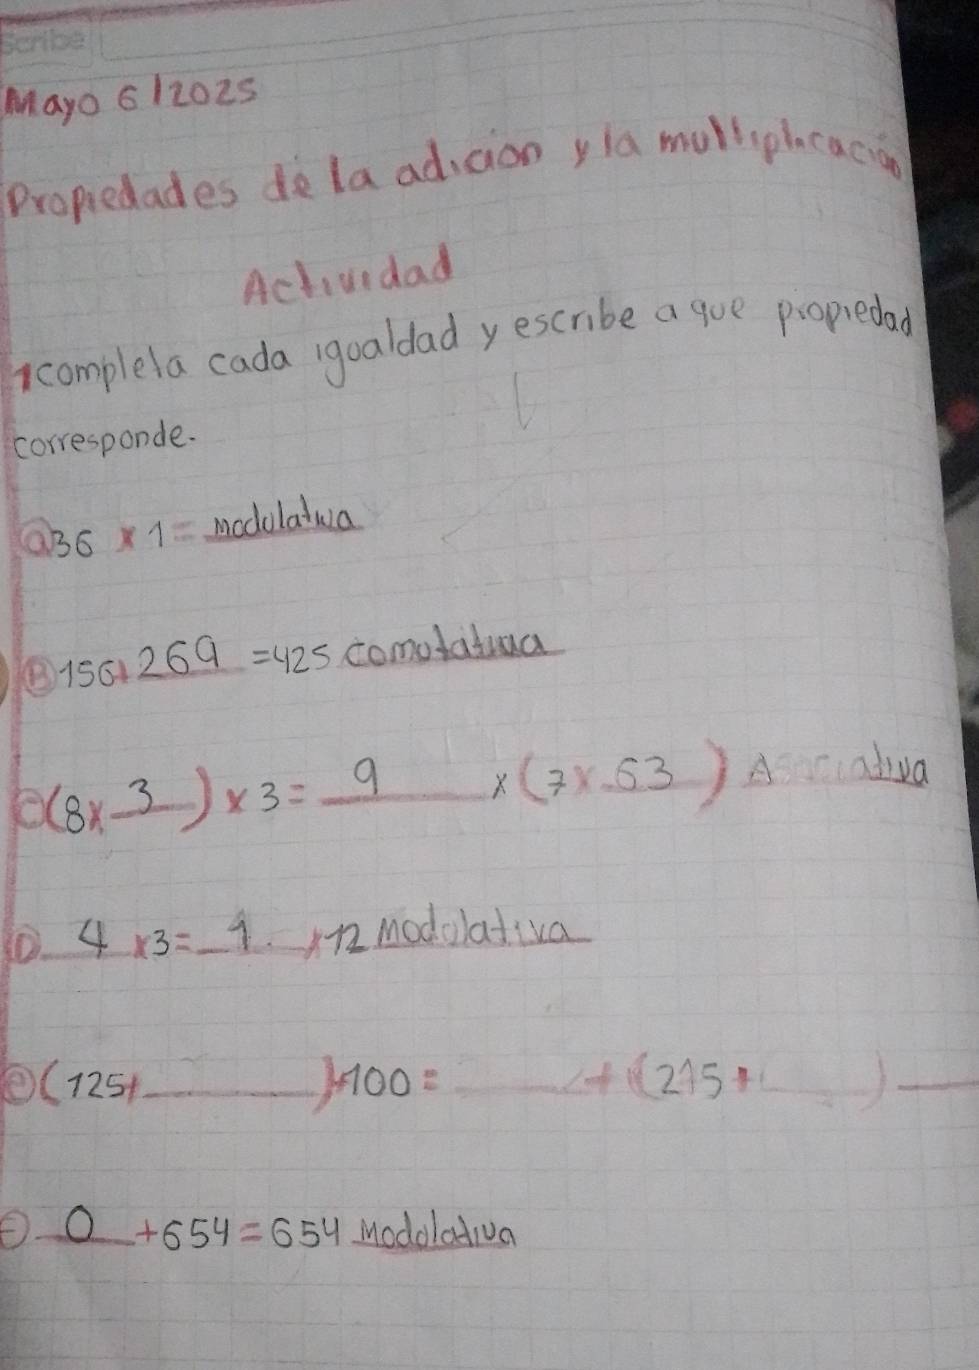 Scribe
Mayo 6/2025
Propiedades de la adicion y la multiplicación
Actividad
1 completa cada igualdad y escribe a que propiedad
corresponde.
a 36 x 1 = modulativa
B 156 + 269 = 425 comutativa
C (8 x 3) x 3 = 9 x (7 x 63) Asociativa
D 4 x 3 = 1 x 12 Modulativa
e (125 + ____) + 100 = ____ + (215 + ____) ____
F 0 + 654 = 654 Modulativa